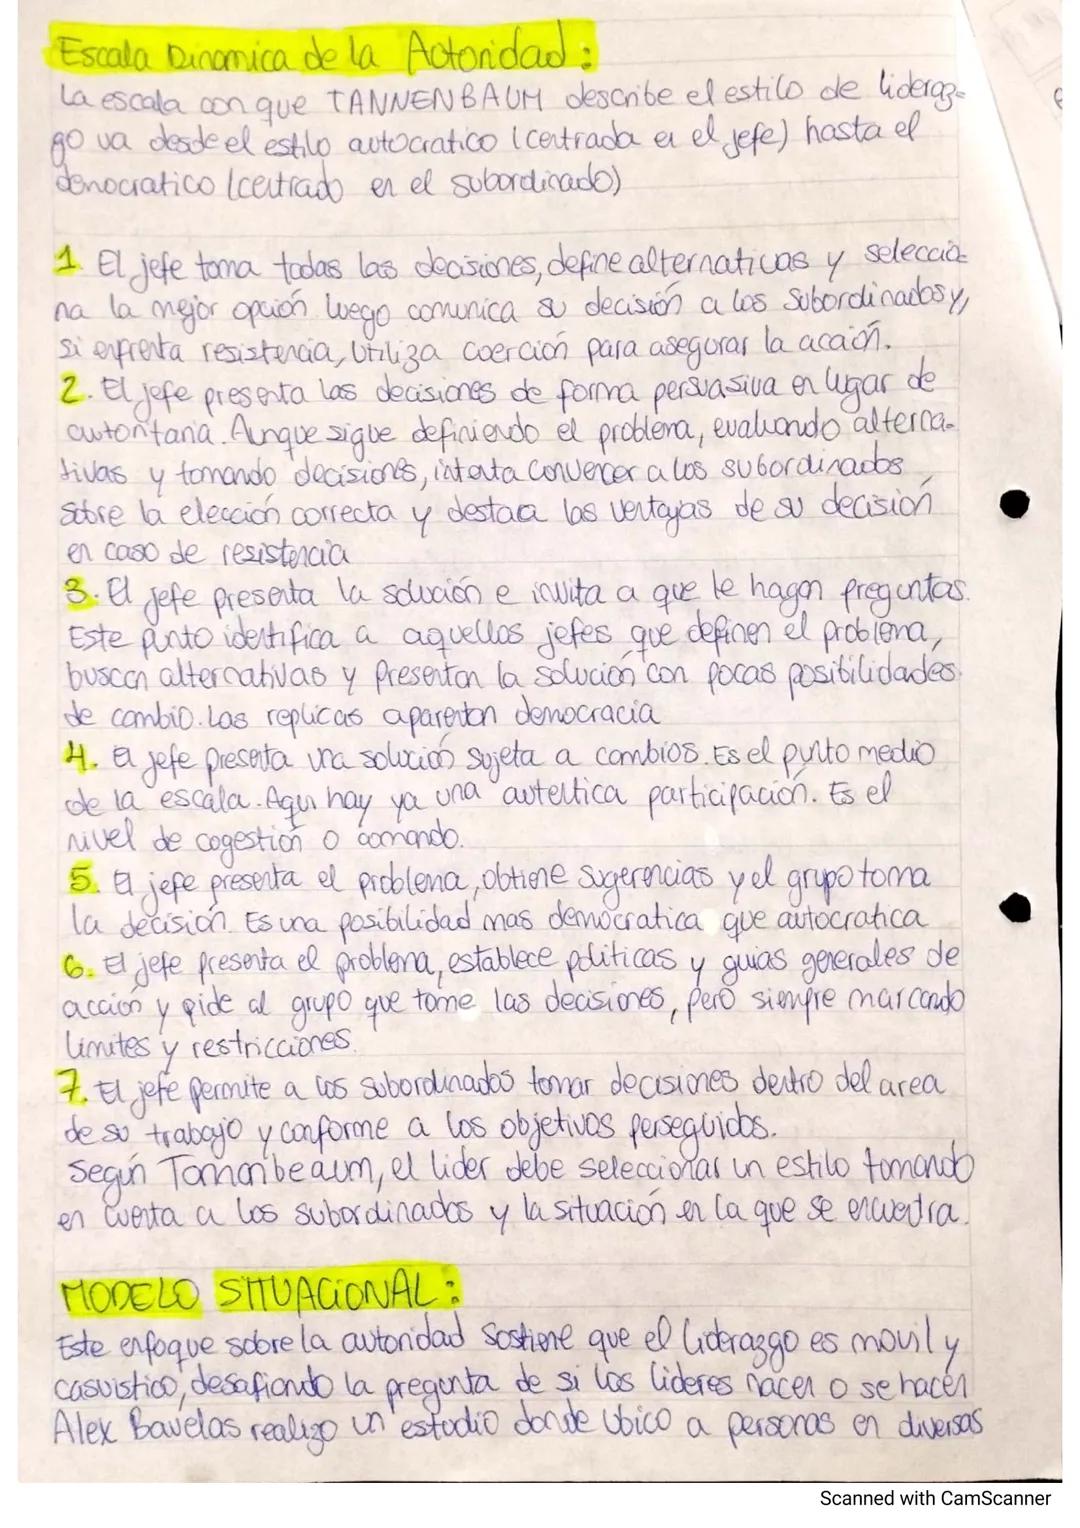 Escala Dinamica de la Autoridad:
La escala con que TANNENBAUM describe el estilo de lideraz-
go va desde el estilo autocratico (centrada en el jefe) hasta el
democratico (centrado en el subordinado)
1. El jefe toma todas las decisiones, define alternativas y seleccio-
na la mejor opción luego comunica su decisión a los subordinados y,
si enfrenta resistencia, utiliza coerción para asegurar la acción.
2. El jefe presenta las decisiones de forma persuasiva en lugar de
autoritaria. Aunque sigue definiendo el problema, evaluando alterna-
tivas y tomando decisiones, intenta convencer a los subordinados
sobre la elección correcta y destaca las ventajas de su decisión
en caso de resistencia
3. El jefe presenta la solución e invita a que le hagan preguntas.
Este punto identifica a aquellos jefes que definen el problema,
buscan alternativas y presentan la solución con pocas posibilidades
de cambio. Las replicas aparentan democracia
4. El jefe presenta una solución sujeta a cambios. Es el punto medio
de la escala. Aqui hay ya una autentica participación. Es el
nivel de cogestión o comando.
5. El jefe presenta el problema, obtiene sugerencias y el grupo toma
la decisión. Es una posibilidad mas democratica que autocratica
6. El jefe presenta el problema, establece politicas y guias generales de
acción y pide al grupo que tome las decisiones, pero siempre marcando
limites y restricciones.
7. El jefe permite a los subordinados tomar decisiones dentro del area
de su trabajo y conforme a los objetivos perseguidos.
Según Tannanbeaum, el lider debe seleccionar un estilo tomando
en cuenta a los subordinados y la situación en la que se encuentra.
MODELO SITUACIONAL:
Este enfoque sobre la autoridad sostiene que el liderazgo es movil y
casuistico, desafiando la pregunta de si los lideres nacen o se hacen
Alex Bavelas realizo un estudio donde ubico a personas en diversas
Scanned with CamScanner